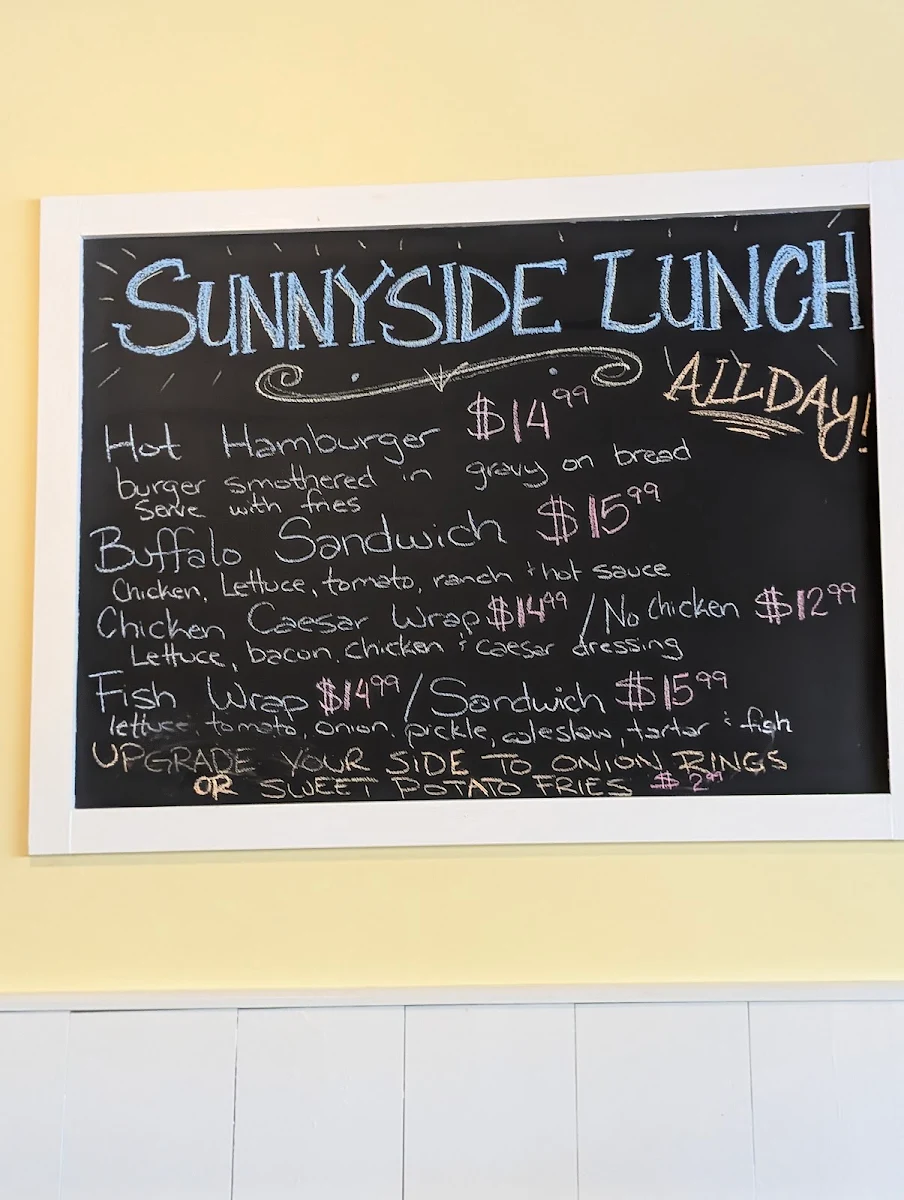 SUNNYSIDE LUNCH
ALL DAY!
Hot Hamburger $14.99
burger smothered in gravy on bread
Serve with fries
Buffalo Sandwich $15.99
Chicken, Lettuce, tomato, ranch & hot sauce
Chicken Caesar Wrap $14.99 / No chicken $12.99
Lettuce, bacon, chicken & caesar dressing
Fish Wrap $14.99 / Sandwich $15.99
lettuce, tomato, onion, pickle, coleslaw, tartar & fish
UPGRADE YOUR SIDE TO ONION RINGS
OR SWEET POTATO FRIES $2.99